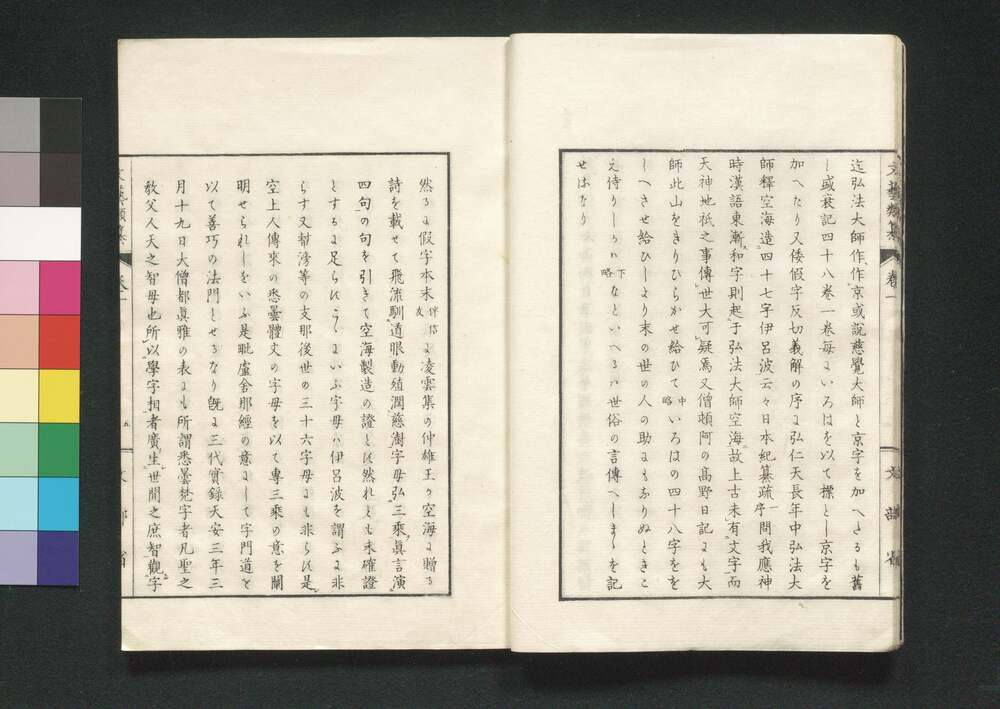 文藝類纂
卷一
文部省
迄弘法大師作作京或說慈覺大師と京字を加へたるも舊
し或衰記四十八卷一卷毎にいろはを以て標とし京字を
加へたり又倭假字反切義解の序に弘仁天長年中弘法大
師釋空海造四十七字伊呂波云々日本紀纂疏序問我應神
時漢語東漸和字則起于弘法大師空海故上古未有文字而
天神地祇之事傳世大可疑焉又僧頓阿の高野日記にも大
師此山をきりひらかせ給ひて中略いろはの四十八字をを
しへさせ給ひしより末の世の人の助にもなりぬときこ
え侍りしか下略なといへるハ世俗の言傳へしまゝを記
せはなり
然るに假字本末伴信友に凌雲集の仲雄王ク空海に贈る
詩を載せて飛流馴道眼動殖潤慈澍字母弘三乘眞言演
四句の句を引きて空海製造の證とは然れとも未確證
とするに足らはこゝにいふ字母ハ伊呂波を謂ふに非
らす又等の支那後世の三十六字母にも非らは是
空上人傳來の悉曇體文の字母を以て專三乘の意を闡
明せられしをいふ是毗盧舍那經の意にして字門道と
以て善巧の法門とせるなり旣に三代實錄天安三年三
月十九日大僧都眞雅の表にも所謂悉曇梵字者凡聖之
敎父人天之智母也所以學字相者廣生世間之庶智觀字
文藝類纂
卷一
文部省